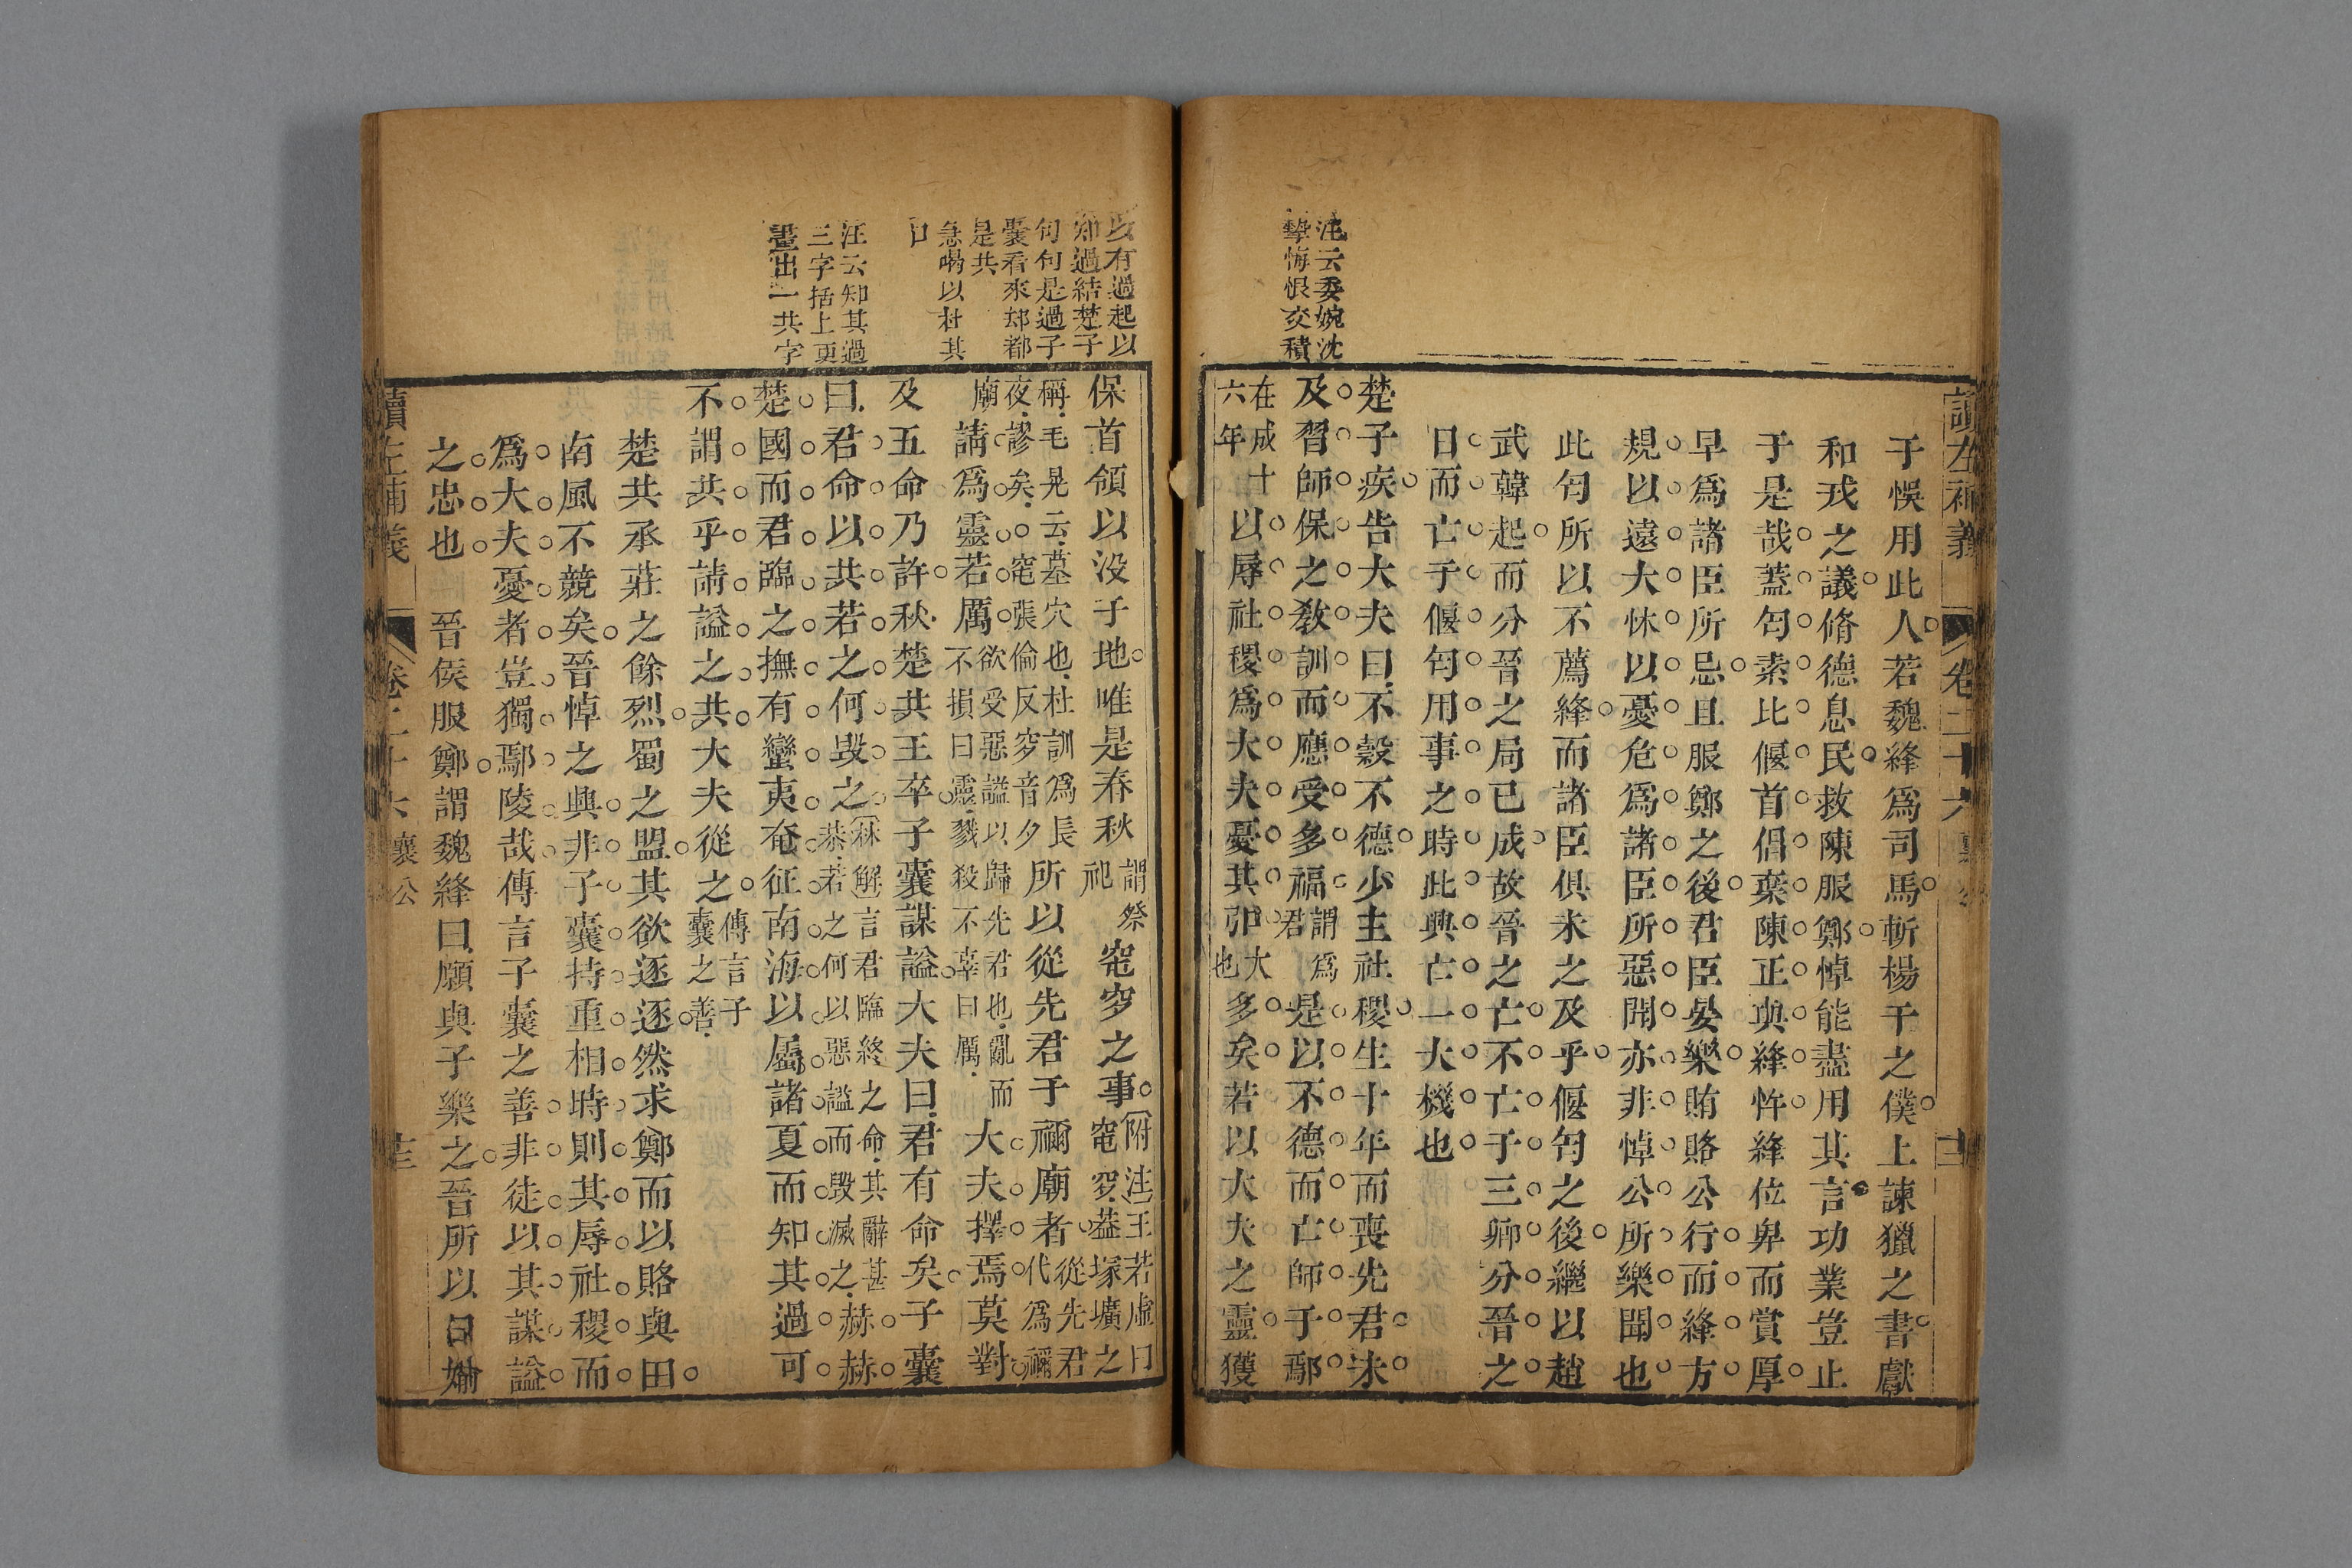 讀左補義
卷二十六
于悞用此人若魏絳爲司馬斬楊干之僕上諫獵之書獻
和戎之議脩德息民救陳服鄭悼能盡用其言功業豈止
于是哉蓋匄素比偃首倡棄陳正與絳忤絳位卑而賞厚
早爲諸臣所忌且服鄭之後君臣晏樂賄賂公行而絳方
規以遠大怵以憂危爲諸臣所惡聞亦非悼公所樂聞也
此匄所以不薦絳而諸臣俱未之及乎偃匄之後繼以趙
武韓起而分晉之局已成故晉之亡不亡于三卿分晉之
日而亡于偃匄用事之時此興亡一大機也
楚子疾告大夫曰不穀不德少主社稷生十年而喪先君未
及習師保之敎訓而應受多福
謂爲
君
是以不德而亡師于鄢
在成十
六年
以辱社稷爲大夫憂其弘
大
也
多矣若以大夫之靈獲
汪云委婉沈
摯悔恨交積
保首領以没于地唯是春秋
謂祭
祀
窀穸之事
附注王若虛曰
窀穸葢塚壙之
稱毛晃云墓穴也杜訓爲長
夜謬矣○窀張倫反穸音夕
所以從先君于禰廟者
從先君
代爲禰
廟
請爲靈若厲
欲受惡謚以歸先君也亂而
不損曰靈戮殺不辜曰厲
大夫擇焉莫對
及五命乃許秋楚共王卒子囊謀謚大夫曰君有命矣子囊
曰君命以共若之何毀之
林解言君臨終之命其辭甚
恭若之何以惡謚而毀滅之
赫赫
楚國而君臨之撫有蠻夷奄征南海以屬諸夏而知其過可
不謂共乎請謚之共大夫從之
傳言子
囊之善
楚共承莊之餘烈蜀之盟其欲逐逐然求鄭而以賂與田
南風不競矣晉悼之興非子囊持重相時則其辱社稷而
爲大夫憂者豈獨鄢陵哉傳言子囊之善非徒以其謀謚
之忠也　晉侯服鄭謂魏絳曰願與子樂之晉所以日婾
以有過起以
知過結楚子
句句是過子
囊看來却都
是共
急喝以杜其
口
汪云知其過
三字括上更
畫出一共字
讀左補義
卷二十六
襄公